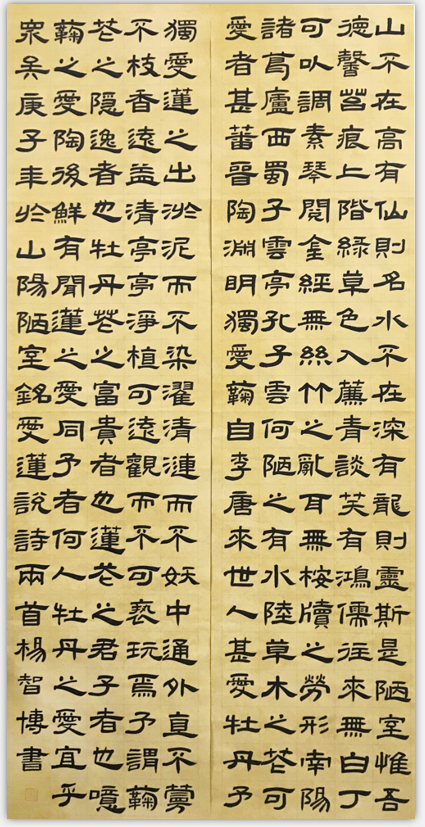 山不在高有仙則名水不在深有龍則靈斯是陋室惟吾
德馨苔痕上階綠草色入簾青談笑有鴻儒往來無白丁
可以調素琴閱金經無絲竹之亂耳無桉牘之勞形南陽
諸葛廬西蜀子雲亭孔子雲何陋之有水陸草木之花可
愛者甚蕃晉陶淵明獨愛鞠自李唐來世人甚愛牡丹予
獨愛蓮之出淤泥而不染濯清漣而不妖中通外直不蔓
不枝香遠益清亭亭淨植可遠觀而不可褻玩焉予謂鞠
花之隱逸者也牡丹花之富貴者也蓮花之君子者也噫
鞠之愛陶後鮮有聞蓮之愛同予者何人牡丹之愛宜乎
眾矣庚子年於山陽陋室銘愛蓮說詩兩首楊智博書